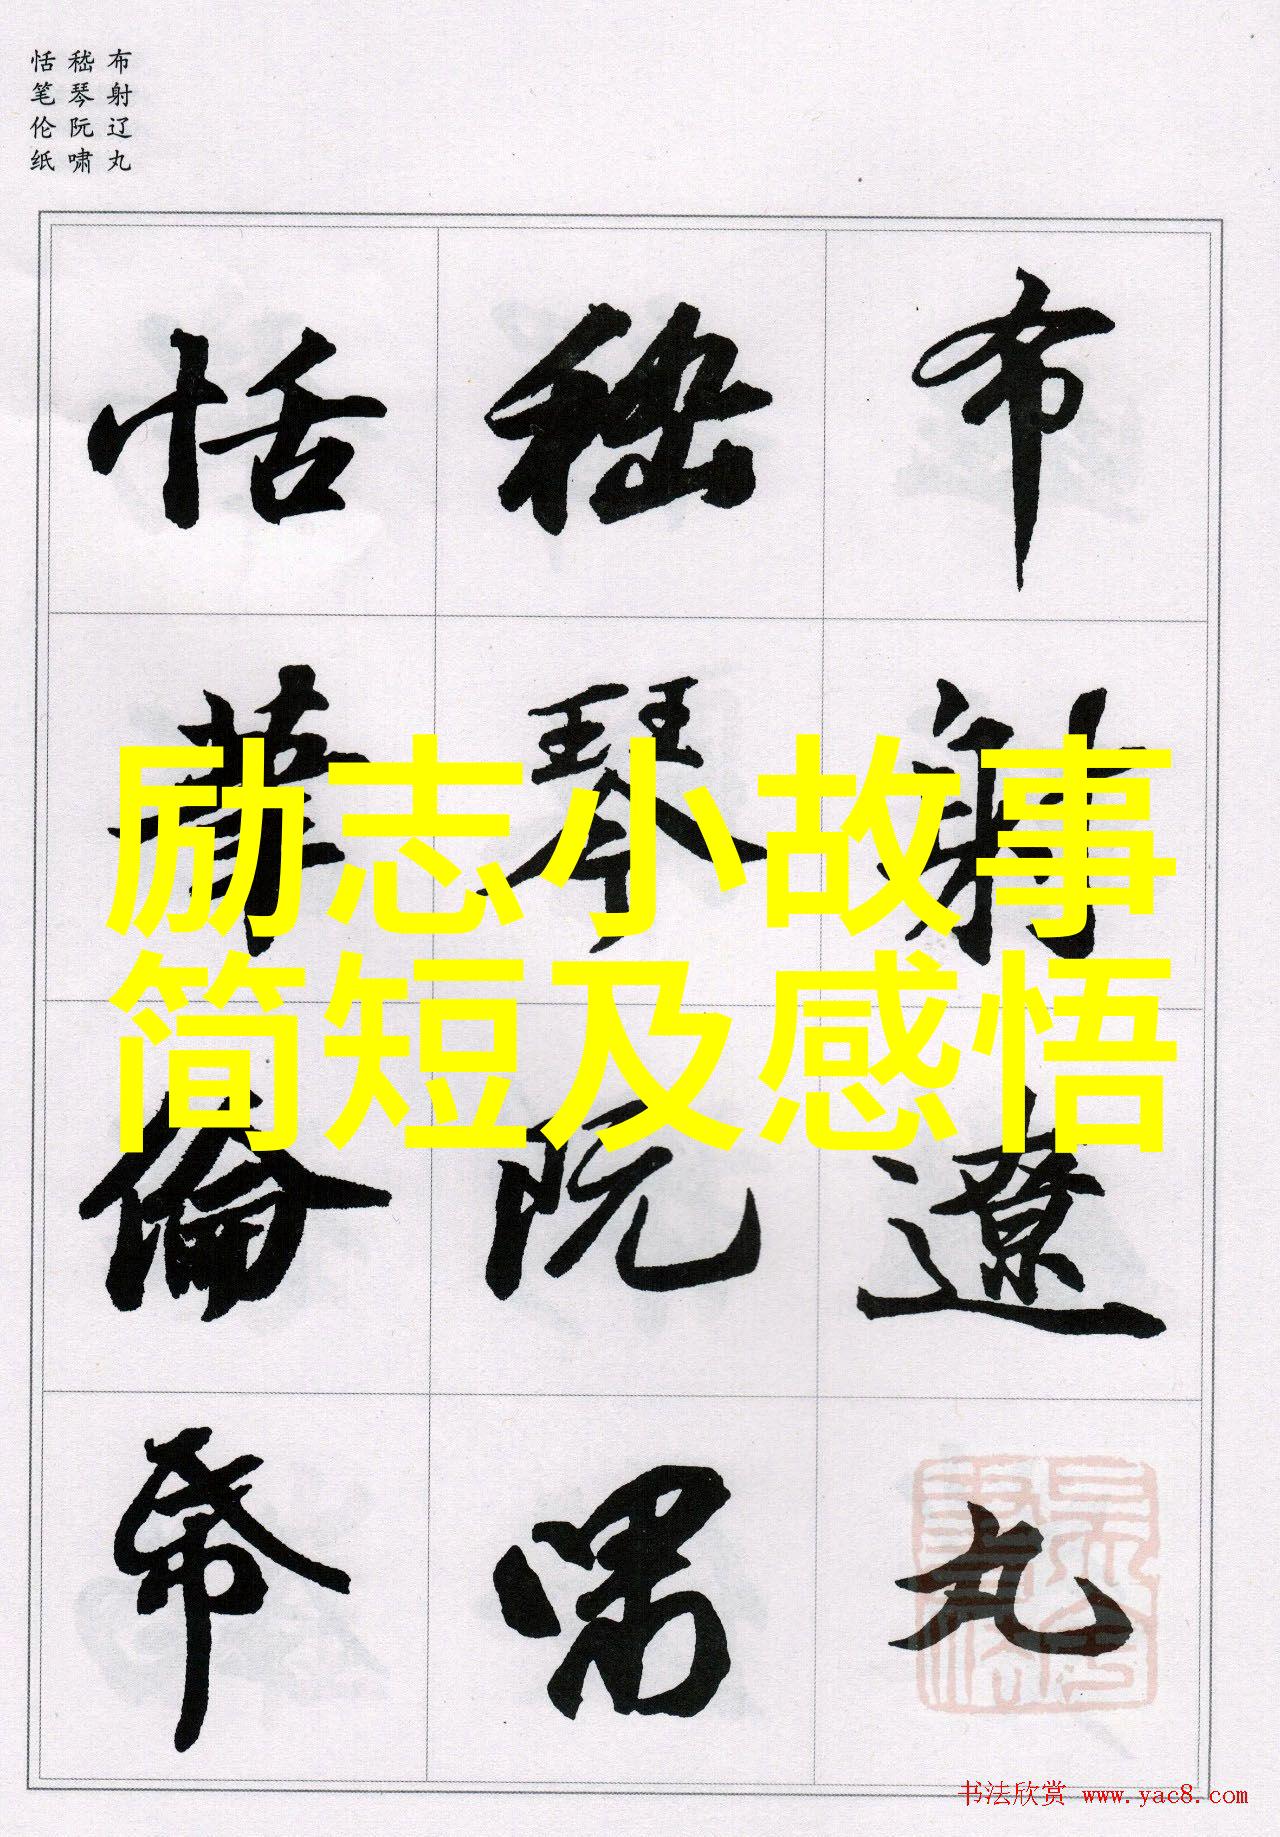 布射辽丸
嵇琴阮啸
恬笔伦纸
布射遼丸
嵇琴阮嘯
恬筆倫帋
励志小故事
简短及感悟
书法欣赏 www.yac8.com